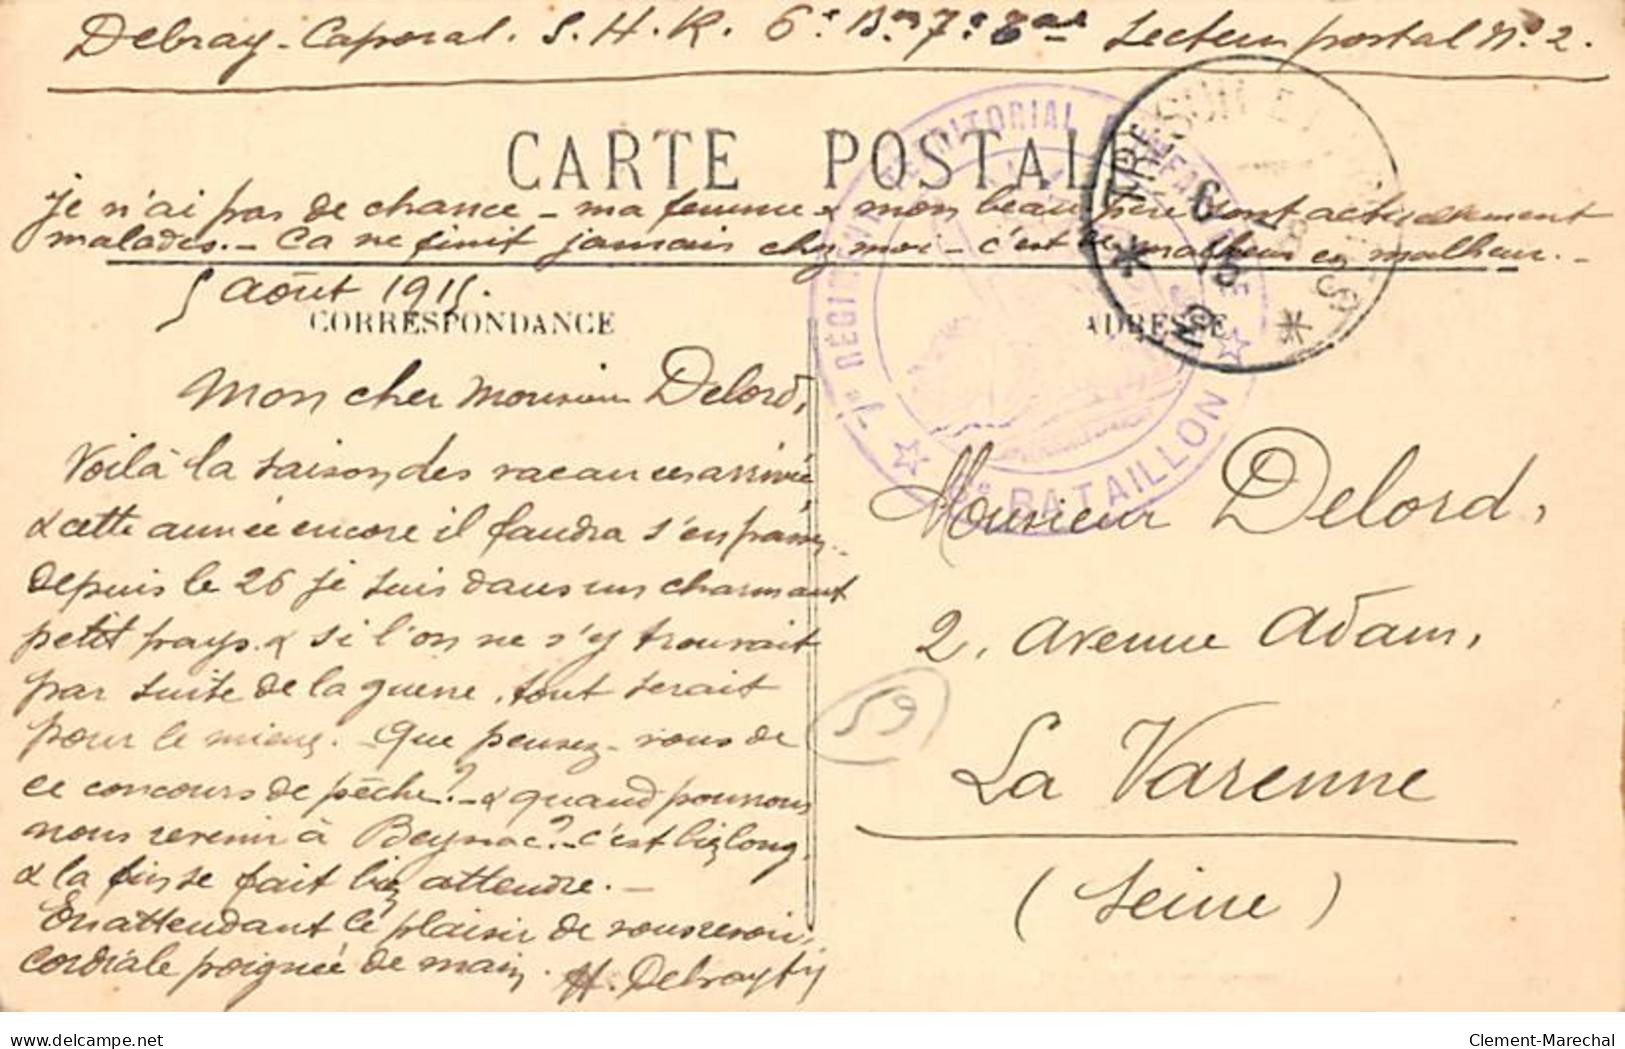 Debray - Caporal. S. H. R. 6e Bon 7e Ter Secteur postal No. 2.
CARTE POSTALE
je n'ai pas de chance - ma femme & mon beau père sont actuellement
malades. - Ca ne finit jamais chez moi - c'est de malheur en malheur. -
5 août 1915.
CORRESPONDANCE
ADRESSE
Mon cher Monsieur Delord,
Voilà la saison des vacances arrivée
& cette année encore il faudra s'en passer..
Depuis le 26 je suis dans un charmant
petit pays & si l'on ne s'y trouvait
par suite de la guerre, tout serait
pour le mieux. - Que pensez-vous de
ce concours de pêche? - & quand pourrons
nous revenir à Beynac? - c'est bien long,
& la fin se fait bien attendre. -
En attendant le plaisir de vous revoir,
cordiale poignée de main. H. Debray
Monsieur Delord,
2, avenue Adam,
La Varenne
(Seine)
59
7e RÉGIMENT TERRITORIAL D'INFANTERIE
6e BATAILLON
TRESOR ET POSTES
6
15
delcampe.net
Clement-Marechal